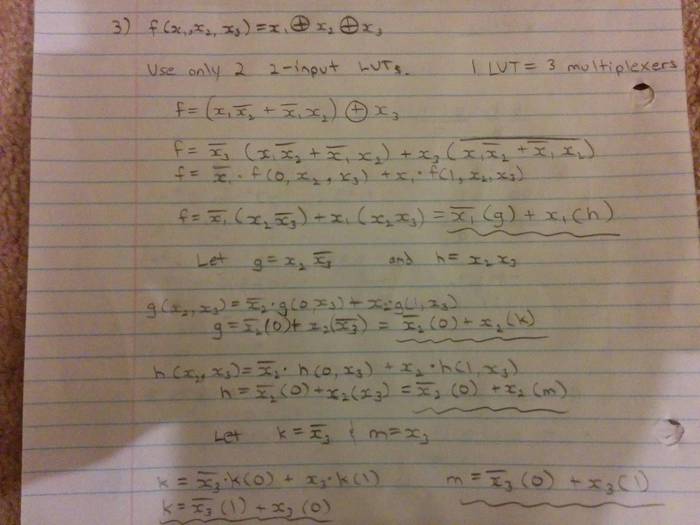 3) f(x₁, x₂, x₃) = x₁ ⊕ x₂ ⊕ x₃
Use only 2 2-input LUTs. 1 LUT = 3 multiplexers
f = (x₁x̅₂ + x̅₁x₂) ⊕ x₃
f = x̅₃ (x₁x̅₂ + x̅₁x₂) + x₃ (\overline{x₁x̅₂ + x̅₁x₂})
f = x̅₁ · f(0, x₂, x₃) + x₁ · f(1, x₂, x₃)
f = x̅₁ (x₂x̅₃) + x₁ (x₂x₃) = x̅₁(g) + x₁(h)
Let g = x₂ x̅₃ and h = x₂ x₃
g(x₂, x₃) = x̅₂ · g(0, x₃) + x₂ · g(1, x₃)
g = x̅₂(0) + x₂(x̅₃) = x̅₂(0) + x₂(k)
h(x₂, x₃) = x̅₂ · h(0, x₃) + x₂ · h(1, x₃)
h = x̅₂(0) + x₂(x₃) = x̅₂(0) + x₂(m)
Let k = x̅₃ & m = x₃
k = x̅₃ · k(0) + x₃ · k(1) m = x̅₃(0) + x₃(1)
k = x̅₃(1) + x₃(0)